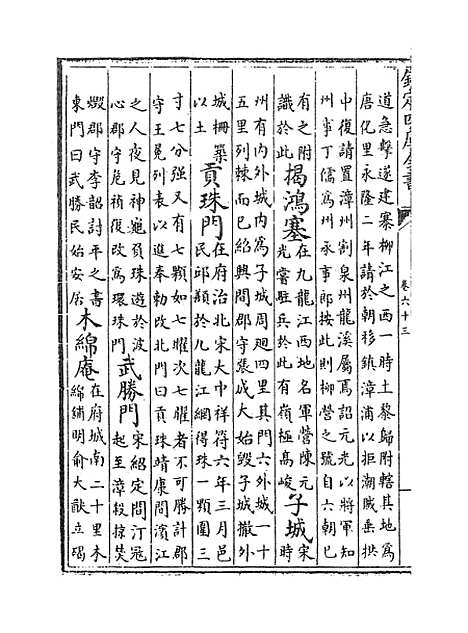 欽定四庫全書
卷六十三
道急擊遂建寨柳江之西一時土黎歸附轄其地為
唐化里永隆二年請於朝移鎮漳浦以拒潮賊垂拱
中復請置漳州割泉州龍溪屬焉詔元光以將軍知
州事丁儒為州承事郎按此則柳營之號自六朝已
有之附識於此 揭鴻塞 在九龍江西地名軍營陳元光嘗駐兵於此有嶺極高峻 子城 宋時
州有内外城内為子城周廻四里其門六外城一十
五里列棘而已紹興間郡守張成大始毁子城撤外
城柵築以土 貢珠門 在府治北宋大中祥符六年三月邑民邱顥於九龍江網得珠一顆圍三
寸七分强又有七顆如七曜次七曜者不可勝計郡
守王冕列表以進奉勅改北門曰貢珠靖康間濱江
之人夜見神龜負珠遊於波心郡守危稹復改為環珠門 武勝門 宋紹定間汀冦起至漳殺掠焚
燬郡守李韶討平之書東門曰武勝民始安居 木綿庵 在府城南二十里木綿鋪明俞大猷立碣